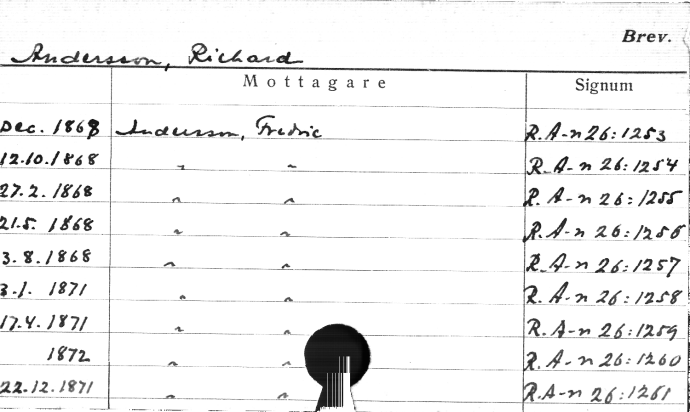 Brev.
Andersson, Richard
Mottagare Signum
Dec. 1868 Andersson, Fredric R.A-n 26:1253
12.10.1868 " " R.A-n 26:1254
27.2.1868 " " R.A-n 26:1255
21.5.1868 " " R.A-n 26:1256
3.8.1868 " " R.A-n 26:1257
3.1.1871 " " R.A-n 26:1258
17.4.1871 " " R.A-n 26:1259
1872 " " R.A-n 26:1260
22.12.1871 " " R.A-n 26:1261